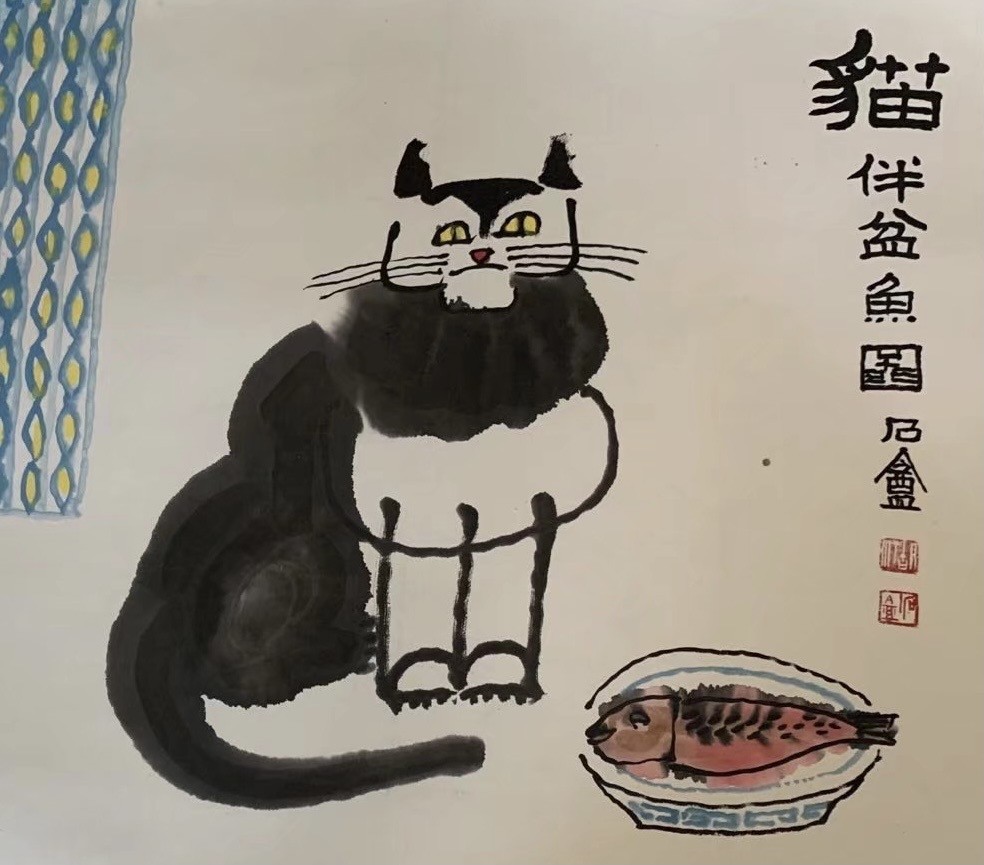 貓伴盆魚圖 石盦